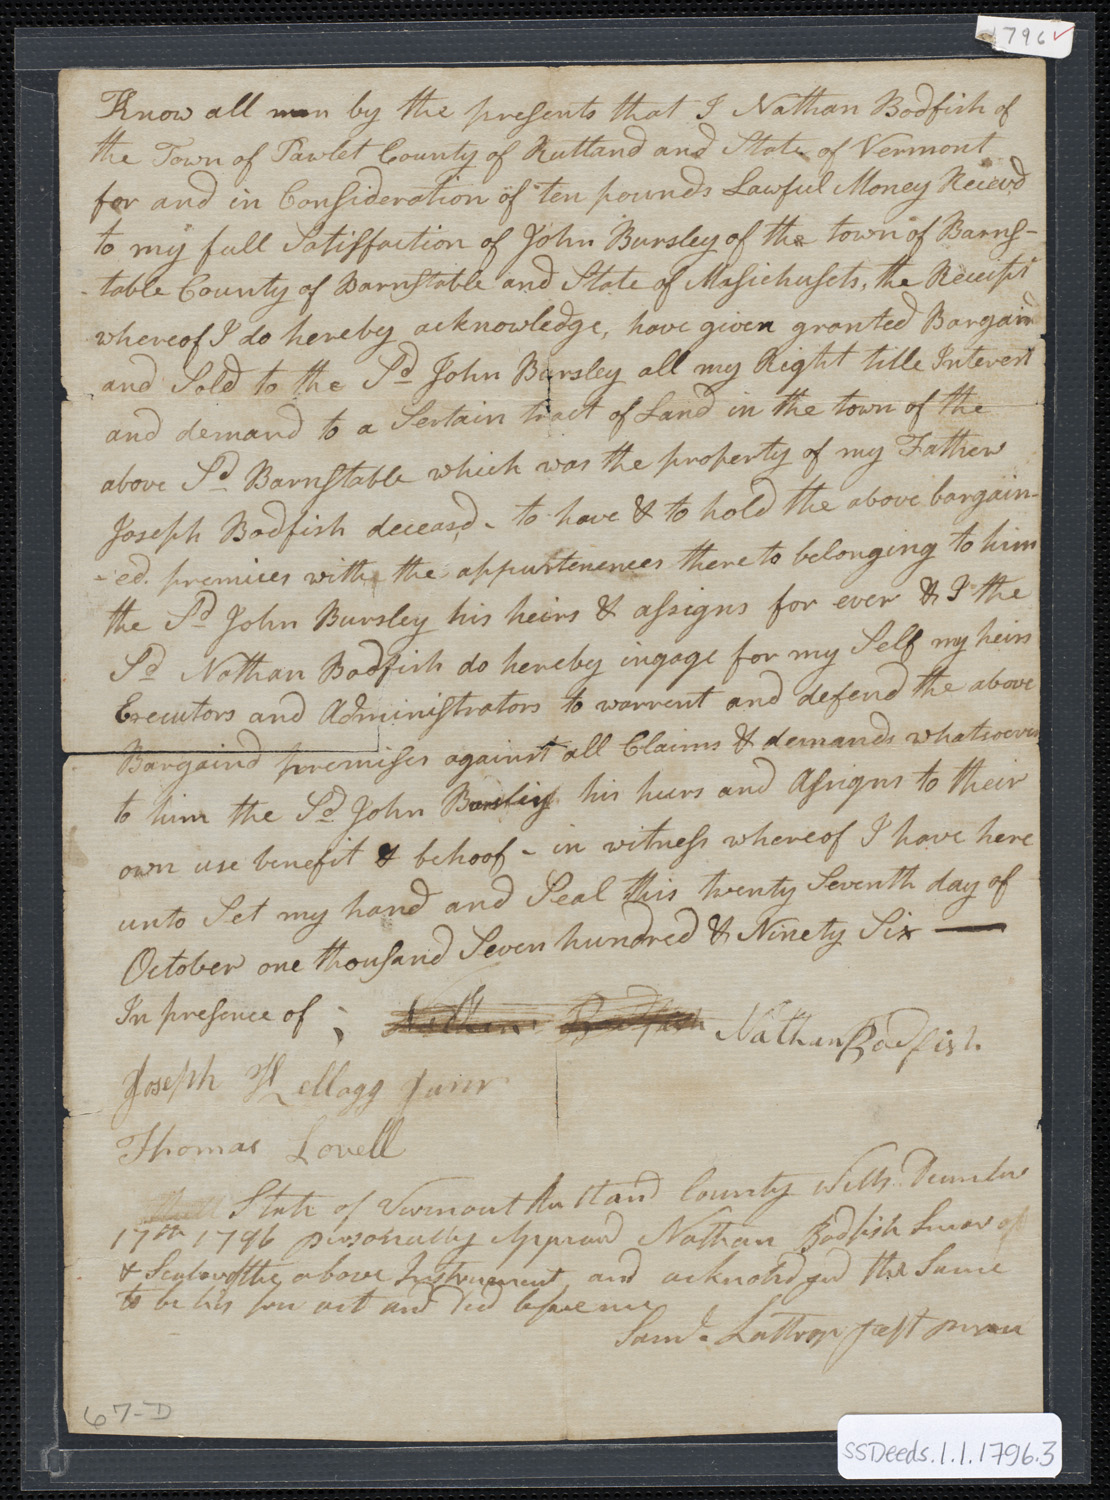 1796 ✓
Know all men by the presents that I Nathan Bodfish of
the Town of Pawlet County of Rutland and State of Vermont
for and in Consideration of ten pounds Lawful Money Receivd
to my full Satisffaction of John Bursley of the town of Barns-
-table County of Barnstable and State of Masichusets, the Receipt
whereof I do hereby acknowledge, have given granted Bargaind
and Sold to the Sd John Bursley all my Right title Interest
and demand to a Sertain tract of Land in the town of the
above Sd Barnstable which was the property of my Father
Joseph Bodfish deceasd, - to have & to hold the above bargain-
-ed. premises with the appurtenences there to belonging to him
the Sd John Bursley his heirs & assigns for ever & I the
Sd Nathan Bodfish do hereby ingage for my Self my heirs
Executors and Administrators to warrent and defend the above
Bargaind premises against all Claims & demands whatsoever
to him the Sd John Bursley his heirs and Assigns to their
own use benefit & behoof - in witness whereof I have here
unto Set my hand and Seal this twenty Seventh day of
October one thousand Seven hundred & Ninety Six —
In presence of ; Nathan Bodfish Nathan Bodfish
Joseph Kellogg Junr
Thomas Lovell
State of Vermont Rutland County Wells December
17th 1796 personally Appeard Nathan Bodfish Signer
& Sealer of the above Instrument and acknoledged the Same
to be his free act and Deed before me
Saml. Lathrop Just peace
67-D
SSDeeds.1.1.1796.3